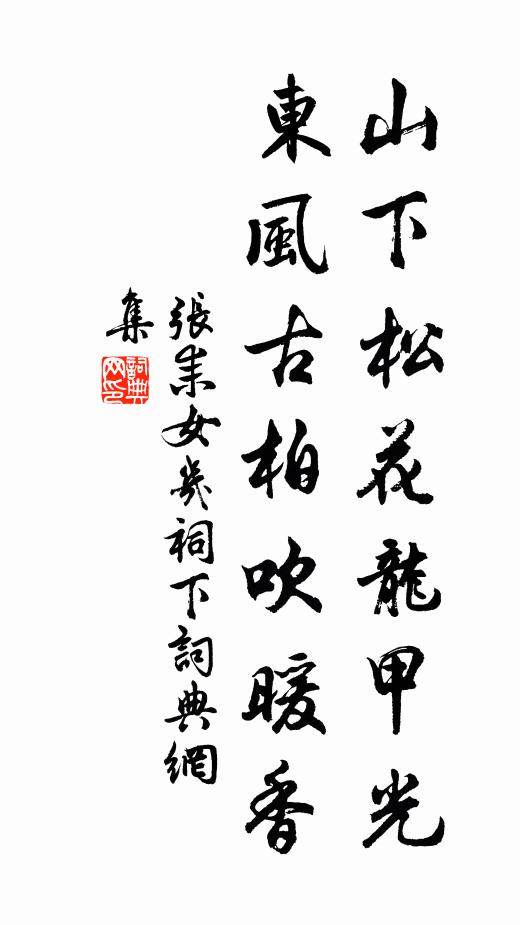 山下松花龍甲光
東風古柏吹暖香
張耒女几祠下詞典網
集
詞典
网印